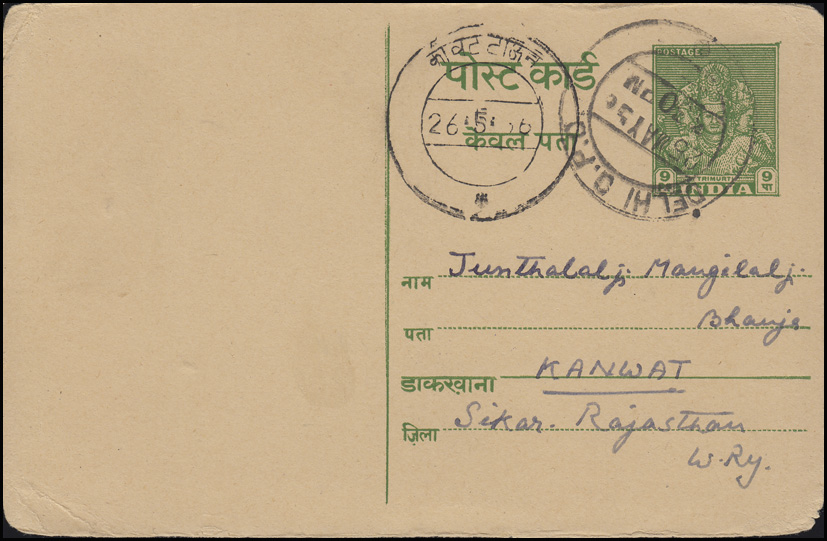 POSTAGE
पोस्ट कार्ड
केवल पता
9 TRIMURTI 9
INDIA पा
26.5.56
DELHI G.P.O.
MAY 56
नाम Junthalalji Mangilalji
पता Bhanja
डाकख़ाना KANWAT
ज़िला Sikar. Rajasthan
W.Ry.